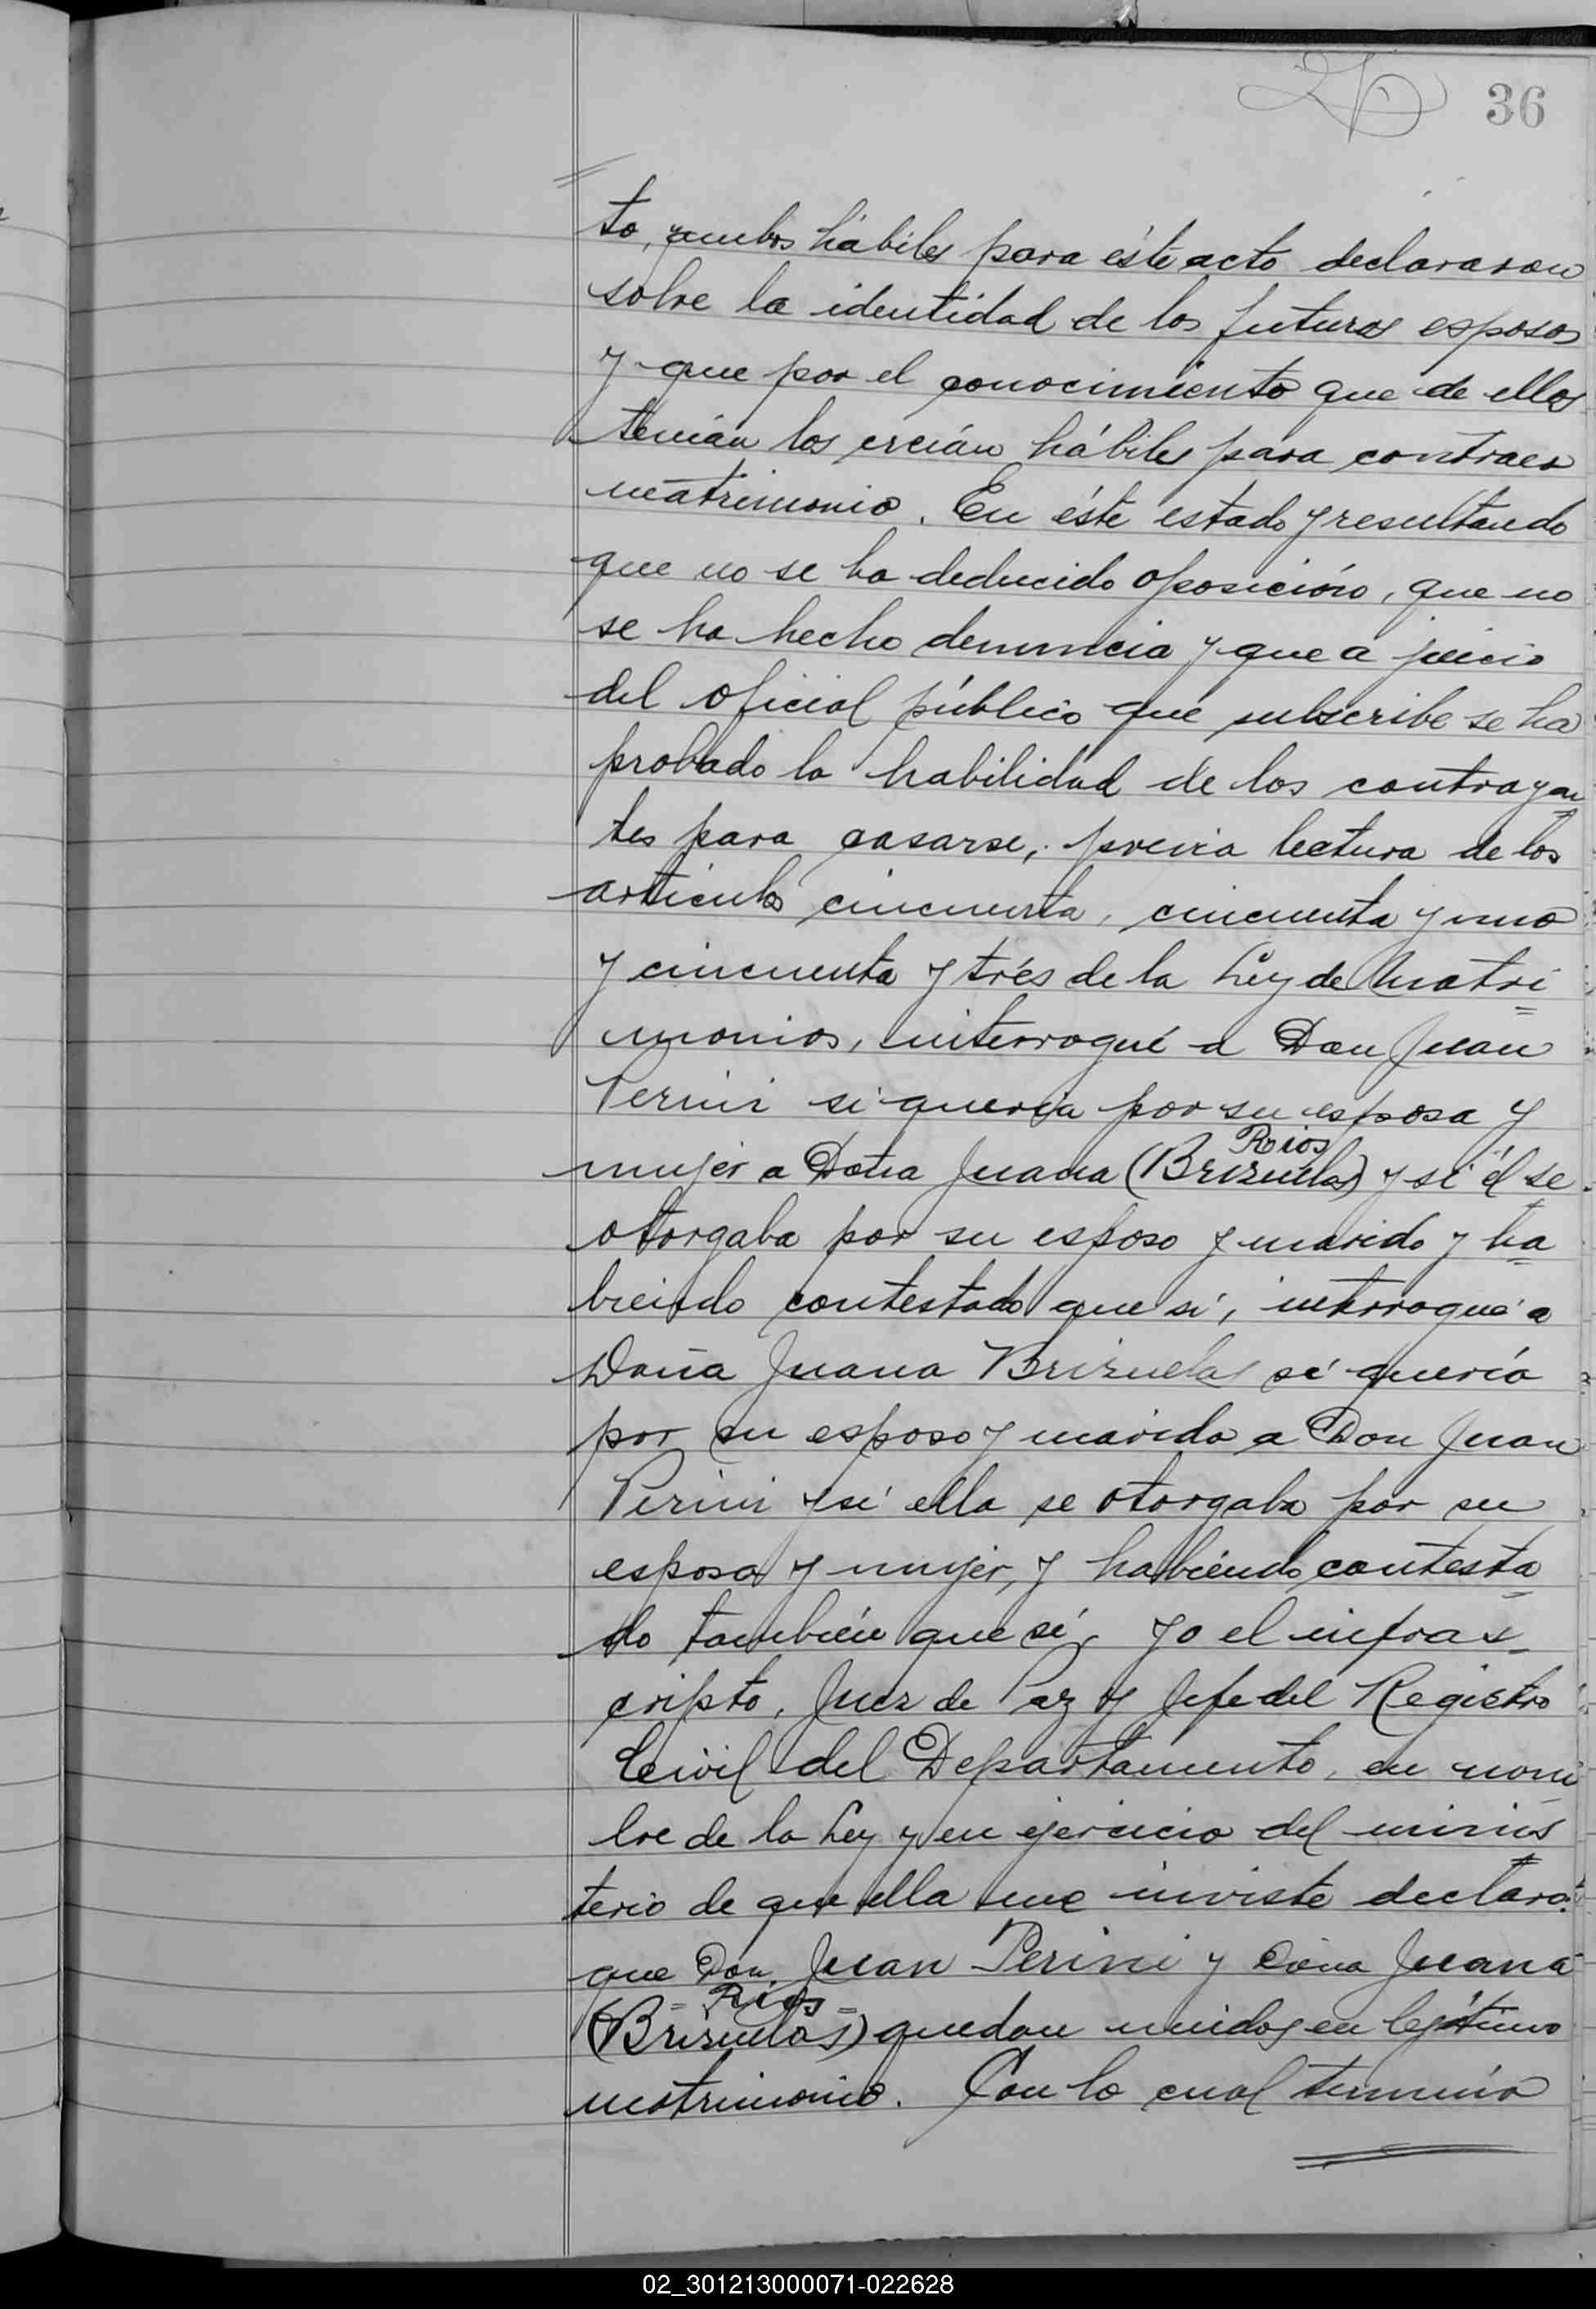 36
to, ambos hábiles para éste acto declararon
sobre la identidad de los futuros esposos
y que por el conocimiento que de ellos
tenían los creían hábiles para contraer
matrimonio. En éste estado y resultando
que no se ha deducido oposición, que no
se ha hecho denuncia y que a juicio
del oficial público que subscribe se ha
probado la habilidad de los contrayen
tes para casarse, previa lectura de los
artículos cincuenta, cincuenta y uno
y cincuenta y trés de la Ley de Matri=
monios, interrogué a Don Juan
Perini si quería por su esposa y
Rios
mujer a Doña Juana (Brizuelas) y si él se
otorgaba por su esposo y marido y ha=
biendo contestado que sí, interrogué a
Doña Juana Brizuelas si quería
por su esposo y marido a Don Juan
Perini y si ella se otorgaba por su
esposa y mujer, y habiendo contesta=
do también que sí, yo el infras=
cripto, Juez de Paz y Jefe del Registro
Civil del Departamento, en nom
bre de la Ley y en ejercicio del minis
terio de que ella me inviste declaro:
que Don Juan Perini y Doña Juana
= Rios =
(Brizuelas) quedan unidos en legítimo
matrimonio. Con lo cual terminó
02_301213000071-022628